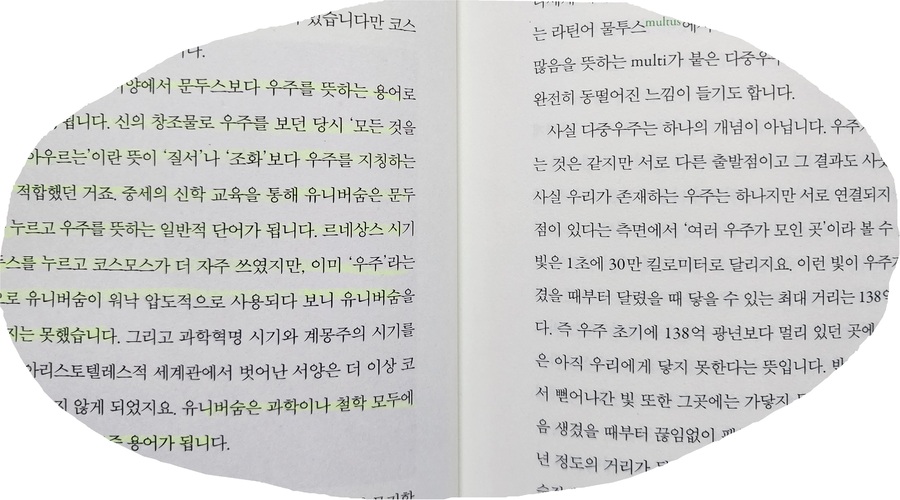 있습니다만 코스
다.
문두스보다 우주를 뜻하는 용어로
됩니다. 신의 창조물로 우주를 보던 당시 '모든 것을
아우르는'이란 뜻이 '질서'나 '조화'보다 우주를 지칭하는
적합했던 거죠. 중세의 신학 교육을 통해 유니버숨은 문두
누르고 우주를 뜻하는 일반적 단어가 됩니다. 르네상스 시기
스를 누르고 코스모스가 더 자주 쓰였지만, 이미 '우주'라는
로 유니버숨이 워낙 압도적으로 사용되다 보니 유니버숨을
지는 못했습니다. 그리고 과학혁명 시기와 계몽주의 시기를
아리스토텔레스적 세계관에서 벗어난 서양은 더 이상 코
지 않게 되었지요. 유니버숨은 과학이나 철학 모두에
용어가 됩니다.
는 라틴어 물투스multus에서
많음을 뜻하는 multi가 붙은 다중우
완전히 동떨어진 느낌이 들기도 합니다.
사실 다중우주는 하나의 개념이 아닙니다. 우주
는 것은 같지만 서로 다른 출발점이고 그 결과도 사
사실 우리가 존재하는 우주는 하나지만 서로 연결되지
점이 있다는 측면에서 '여러 우주가 모인 곳'이라 볼 수
빛은 1초에 30만 킬로미터로 달리지요. 이런 빛이 우주
겼을 때부터 달렸을 때 닿을 수 있는 최대 거리는 138억
다. 즉 우주 초기에 138억 광년보다 멀리 있던 곳에
은 아직 우리에게 닿지 못한다는 뜻입니다.
서 뻗어나간 빛 또한 그곳에는 가닿지
음 생겼을 때부터 끊임없이
년 정도의 거리가